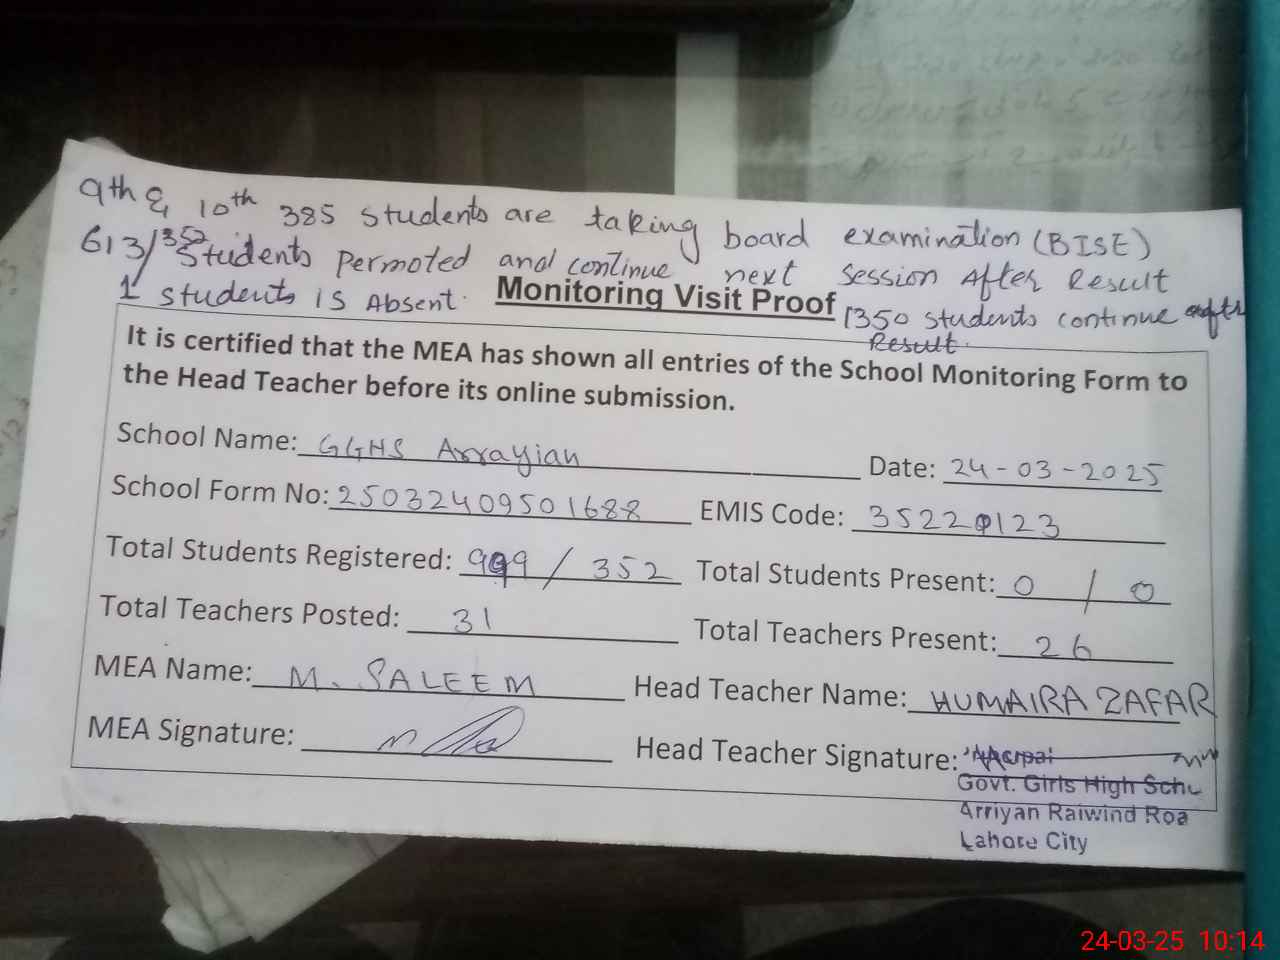 9th & 10th 385 students are taking board examination (BISE)
613/352 students permoted and continue next session After Result
1 students is Absent.
Monitoring Visit Proof
1350 students continue aft
Result.
It is certified that the MEA has shown all entries of the School Monitoring Form to
the Head Teacher before its online submission.
School Name: GGHS Arrayian Date: 24-03-2025
School Form No: 25032409501688 EMIS Code: 35220123
Total Students Registered: 999 / 352 Total Students Present: 0 / 0
Total Teachers Posted: 31 Total Teachers Present: 26
MEA Name: M. SALEEM Head Teacher Name: HUMAIRA ZAFAR
MEA Signature: Head Teacher Signature:
Govt. Girls High Scho
Arriyan Raiwind Roa
Lahore City
24-03-25 10:14